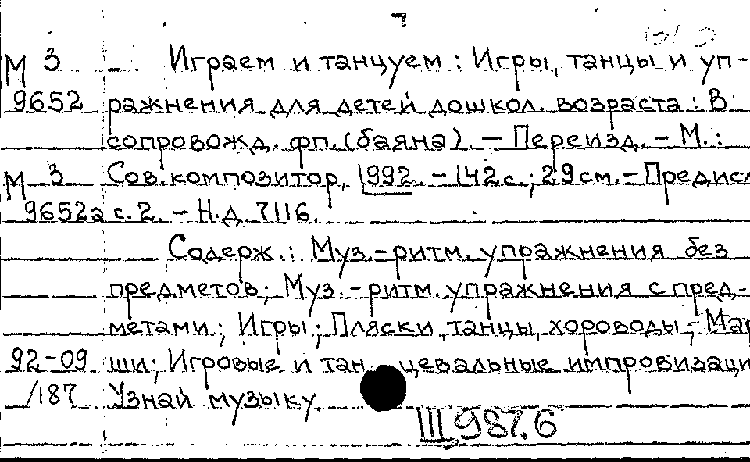 М 3 Играем и танцуем : Игры, танцы и уп-
9652 ражнения для детей дошкол. возраста : В
сопровожд. фп. (баяна). — Переизд. — М. :
М 3 Сов. композитор, 1992. — 142 с. ; 29 см. — Предисл
9652а с. 2. — Н.д. 7116.
Содерж.: Муз.-ритм. упражнения без
предметов; Муз.-ритм. упражнения с пред-
метами; Игры; Пляски, танцы, хороводы; Мар
92-09 ши; Игровые и танцевальные импровизаци
/187 Узнай музыку.
III 987.6